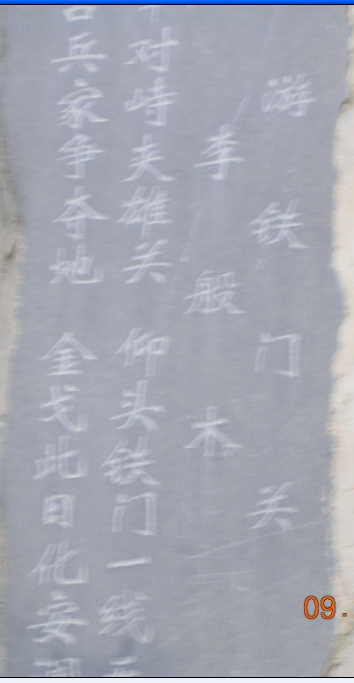 游铁门关
李般木
对峙夹雄关 仰头铁门一线
兵家争夺地 金戈此日化安
09.